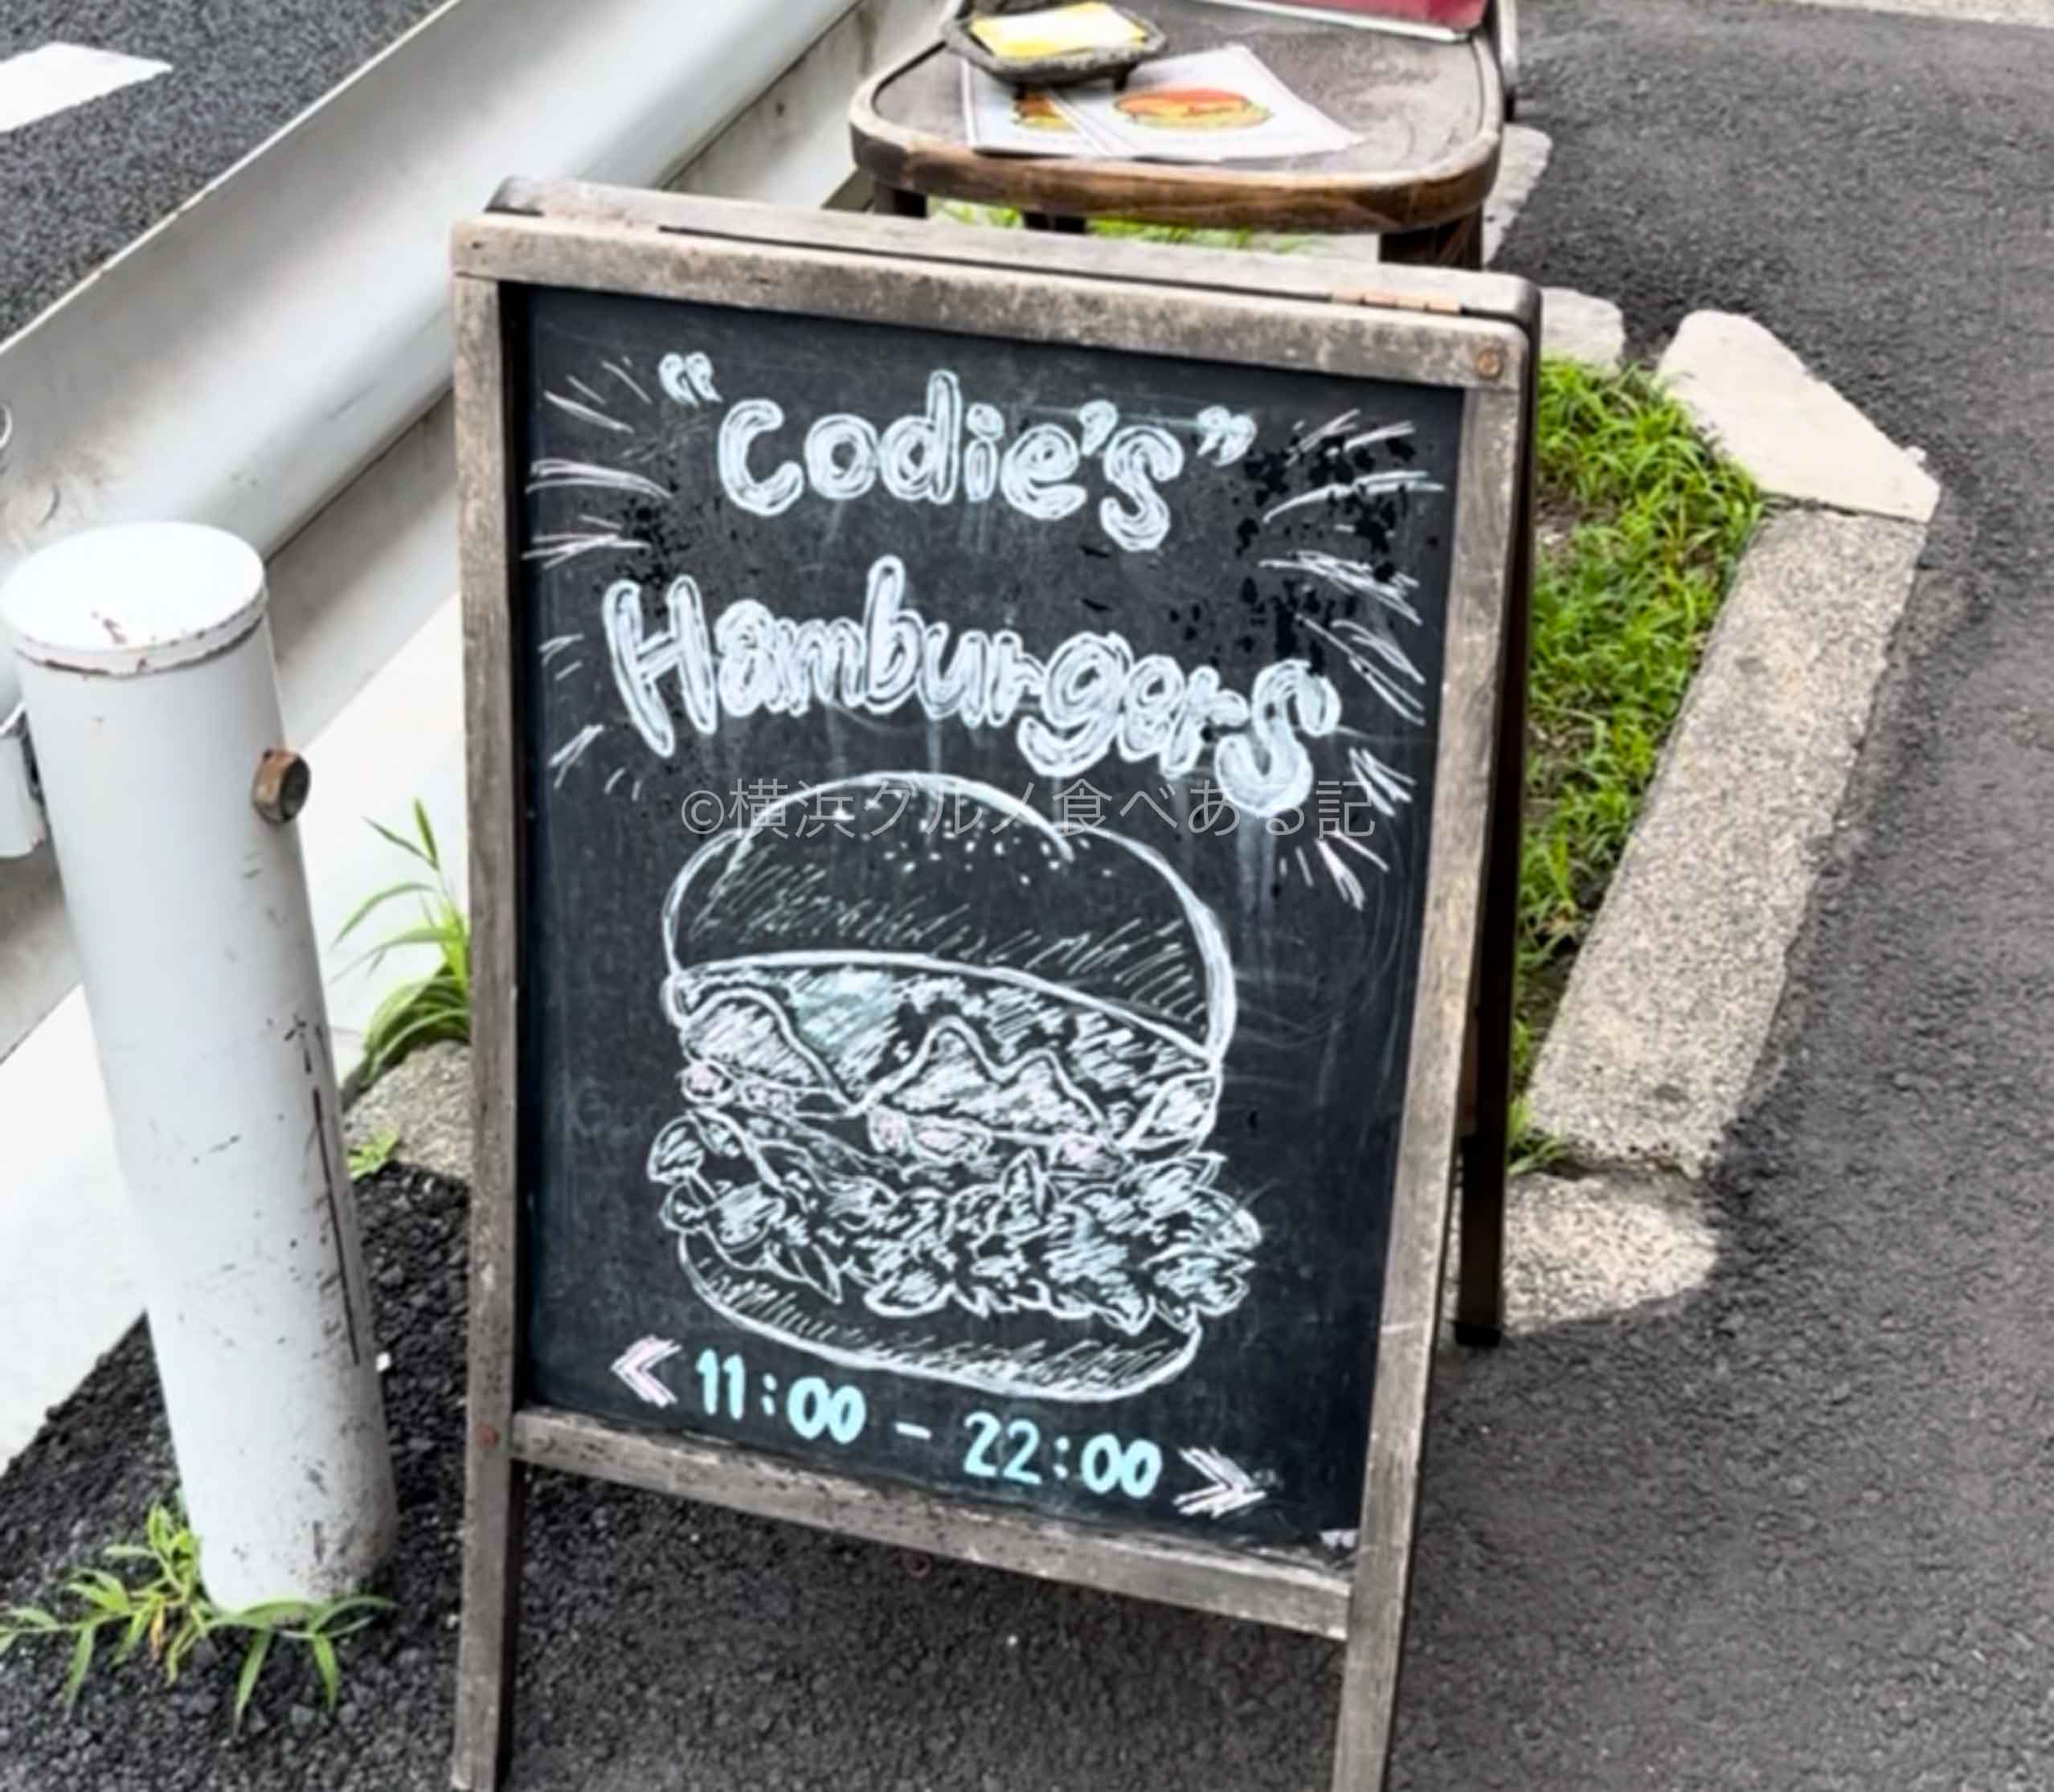 "Codie's"
Hamburgers
©横浜グルメ食べある記
11:00 - 22:00